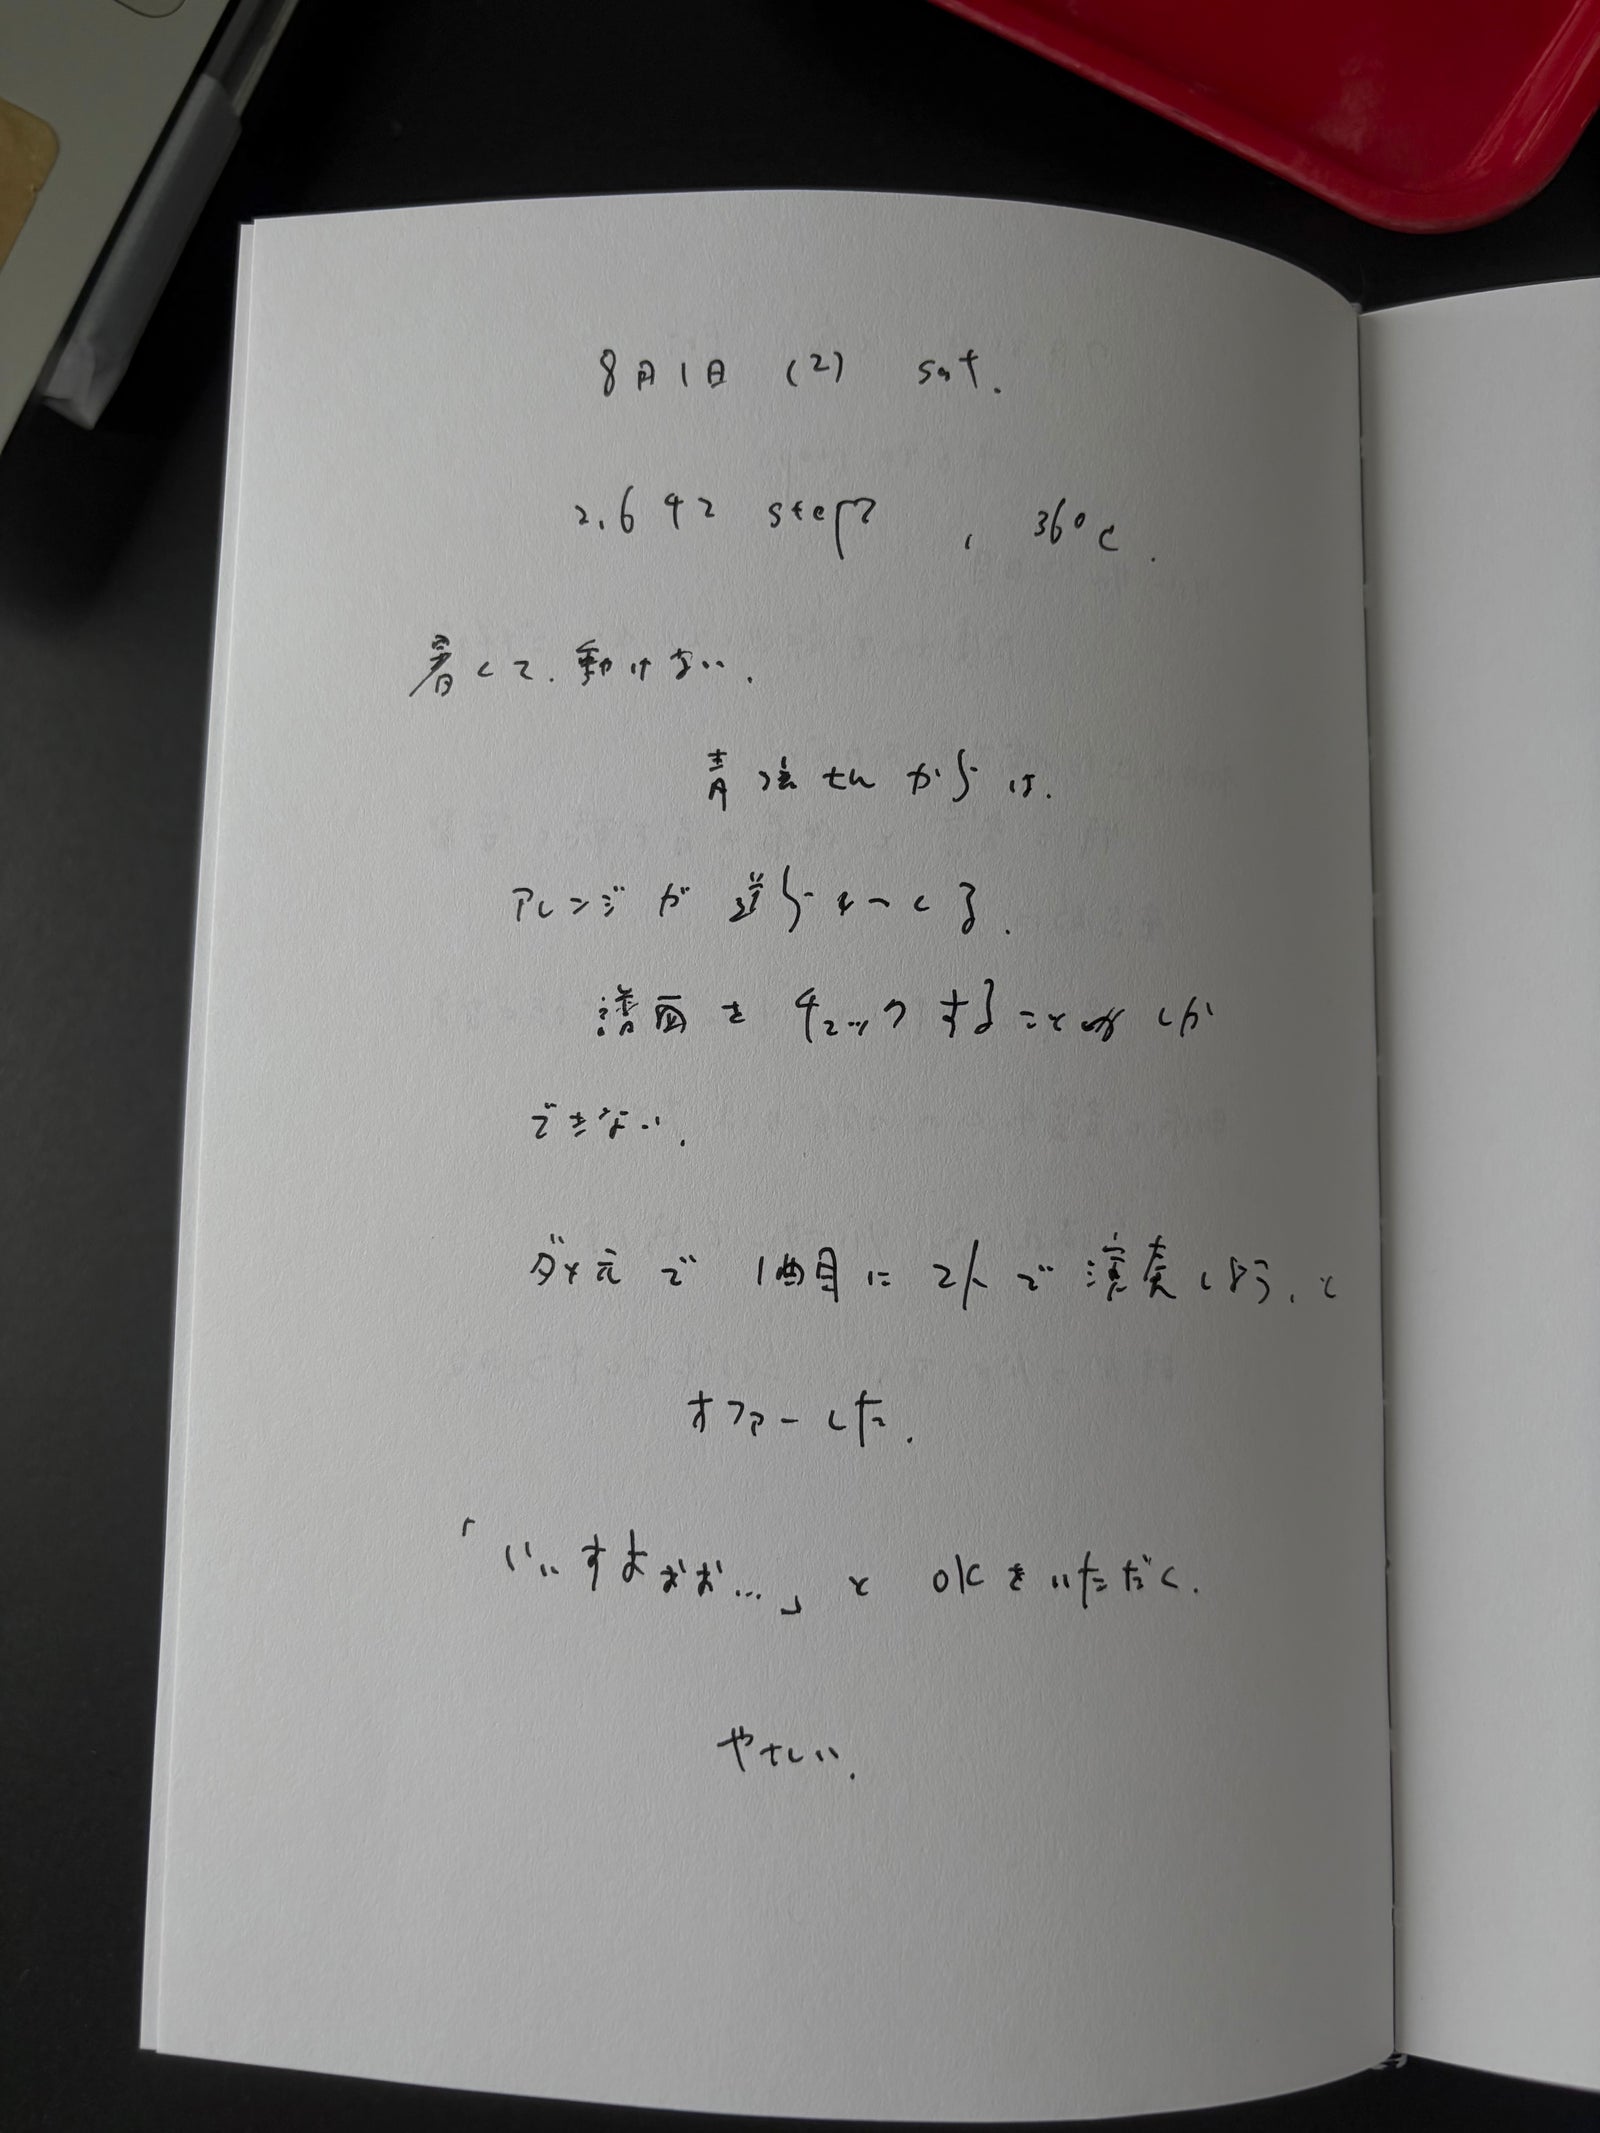 8月1日 (2) sat.
2,642 steps , 36℃.
暑くて、動けない。
さんからは、
アレンジが送られてくる。
譜面をチェックすることしか
できない。
ダメ元で 1曲目に 2人で演奏しよう、と
オファーした。
「いいすよぉぉ…」と OKをいただく。
やさしい。